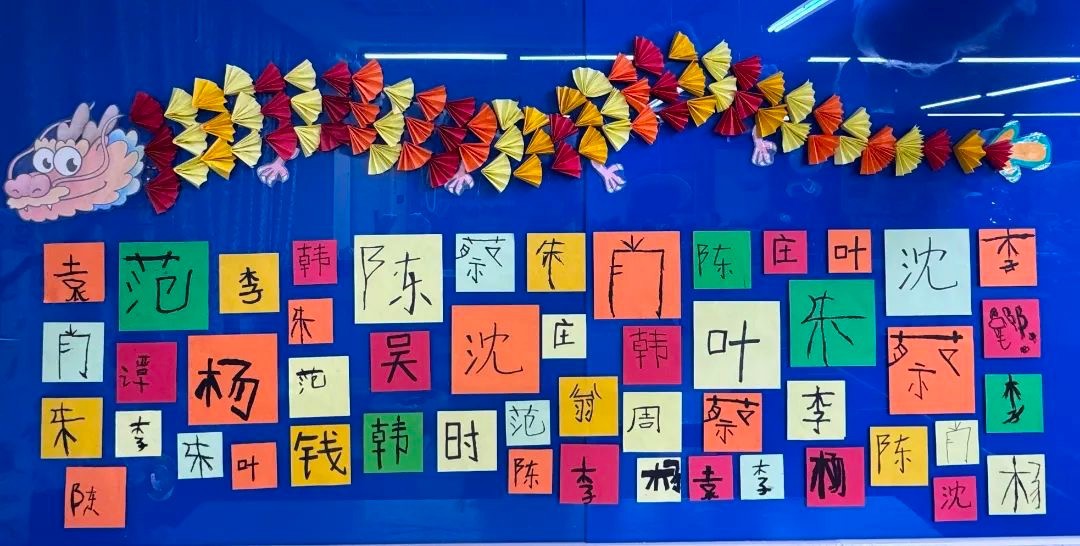 袁 范 李 韩 陈 蔡 朱 肖 陈 庄 叶 沈 李
肖 谭 杨 朱 范 吴 沈 庄 韩 叶 朱 蔡
朱 李 朱 叶 钱 韩 时 范 翁 周 蔡 李 陈 肖 李
陈 陈 李 杨 袁 李 杨 沈 杨